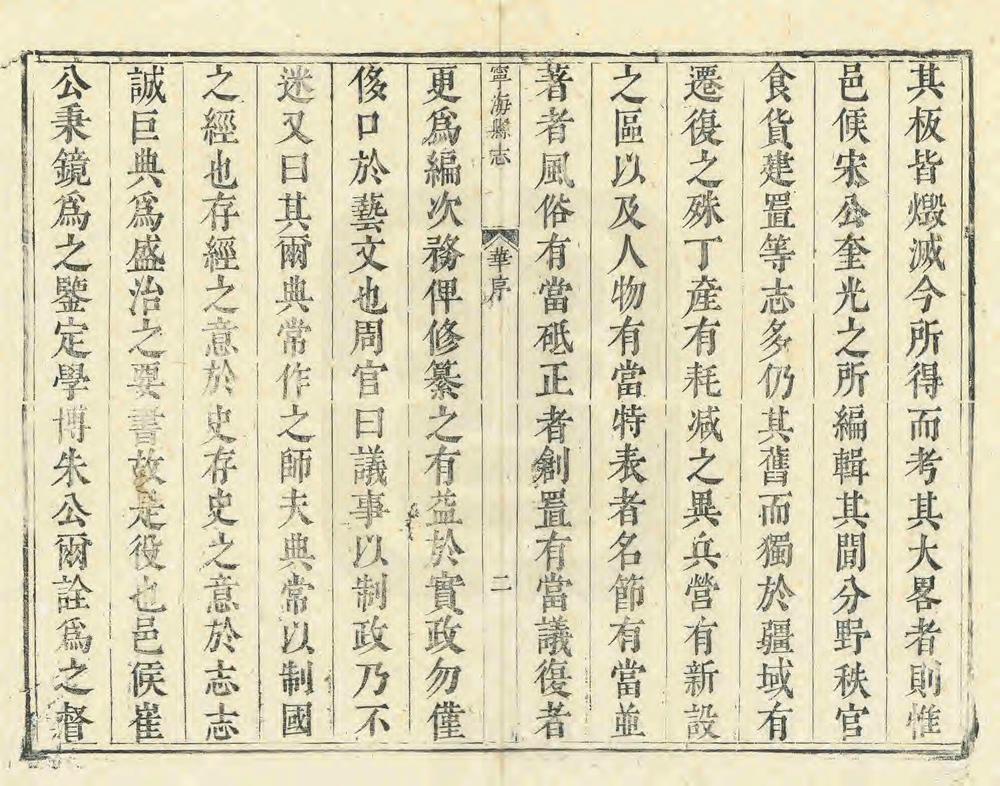 其板皆燬滅今所得而考其大畧者則惟
邑侯宋公奎光之所編輯其間分野秩官
食貨建置等志多仍其舊而獨於疆域有
遷復之殊丁產有耗減之異兵營有新設
之區以及人物有當特表者名節有當並
著者風俗有當砥正者創置有當議復者
寧海縣志
華序
二
更爲編次務俾修纂之有益於實政勿僅
侈口於藝文也周官曰議事以制政乃不
迷又曰其爾典常作之師夫典常以制國
之經也存經之意於史存史之意於志志
誠巨典爲盛治之要書故是役也邑侯崔
公秉鏡爲之鑒定學博朱公爾詮爲之督